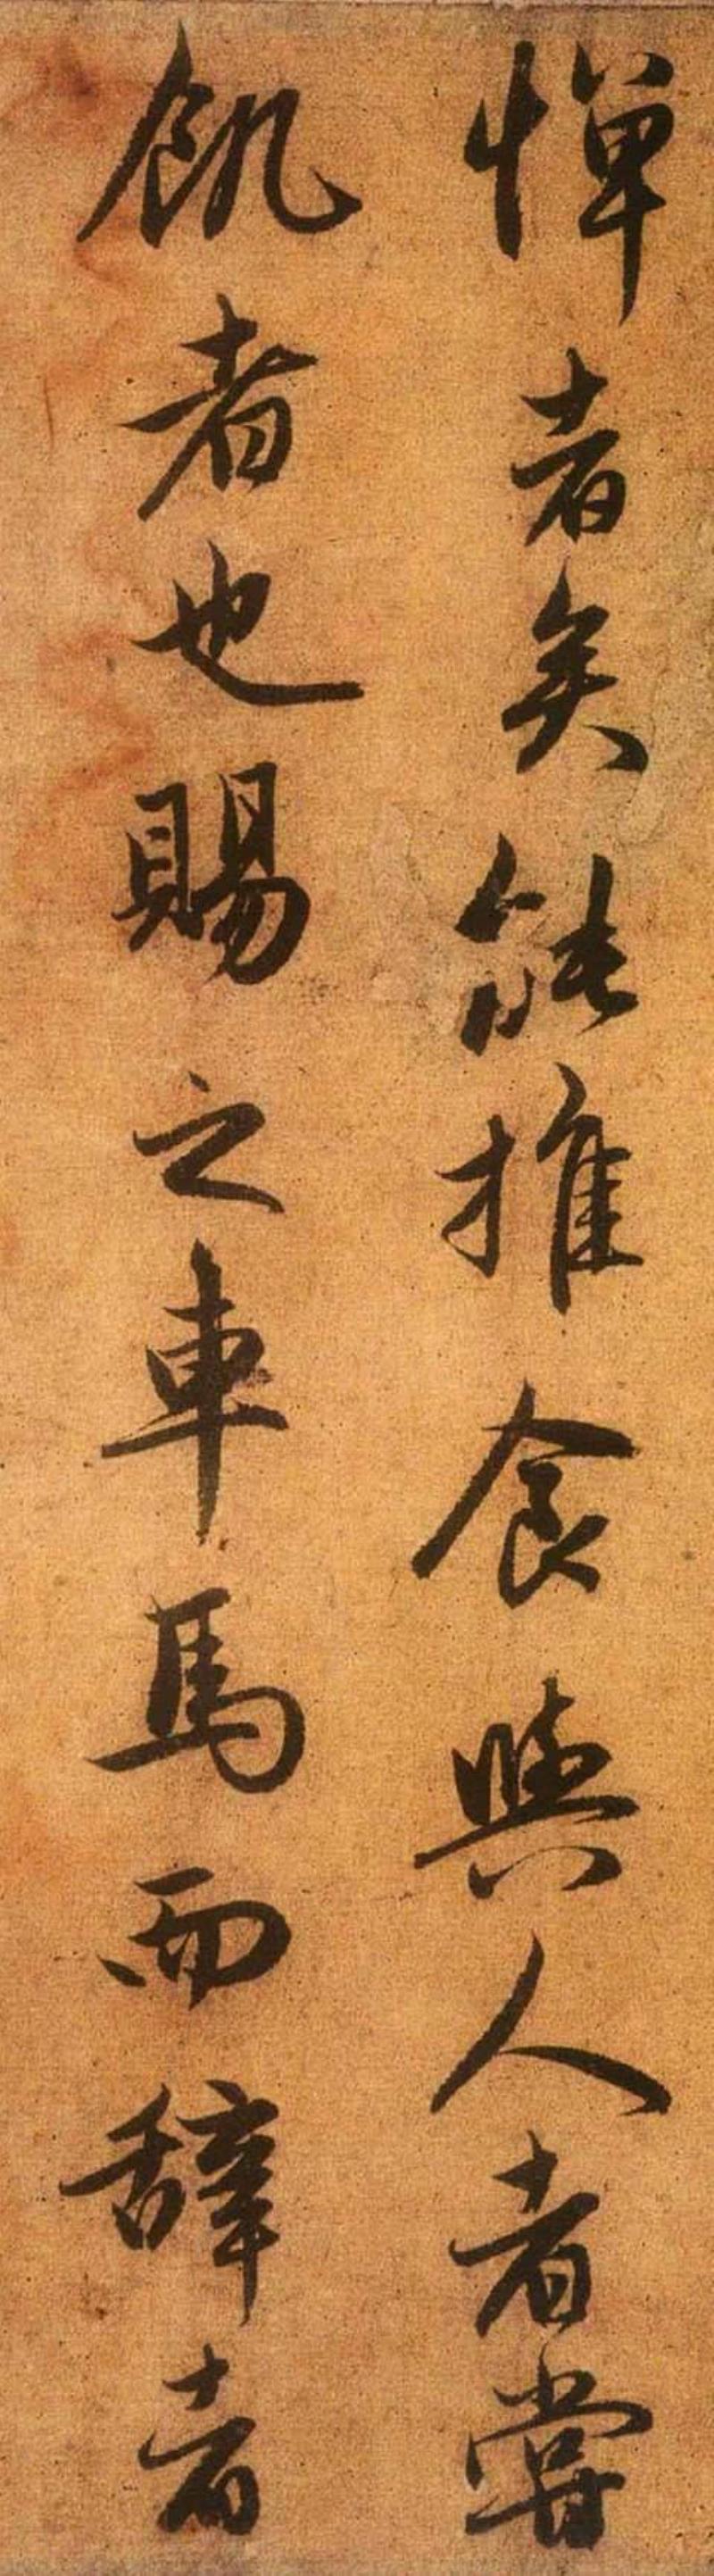 惮者矣能推食與人者嘗
飢者也賜之車馬而辞者